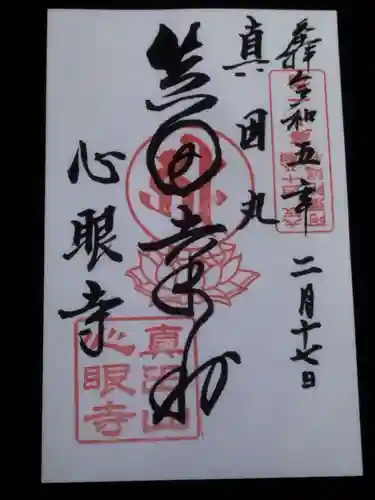 奉拝 令和五年 二月十七日
真田丸
真田幸村
心眼寺
真田山
心眼寺